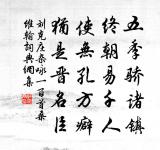 五季骄诸镇
终朝易十人
使无孔方癖
犹是晋名臣
刘克庄杂咏一百首桑
维翰词典网集